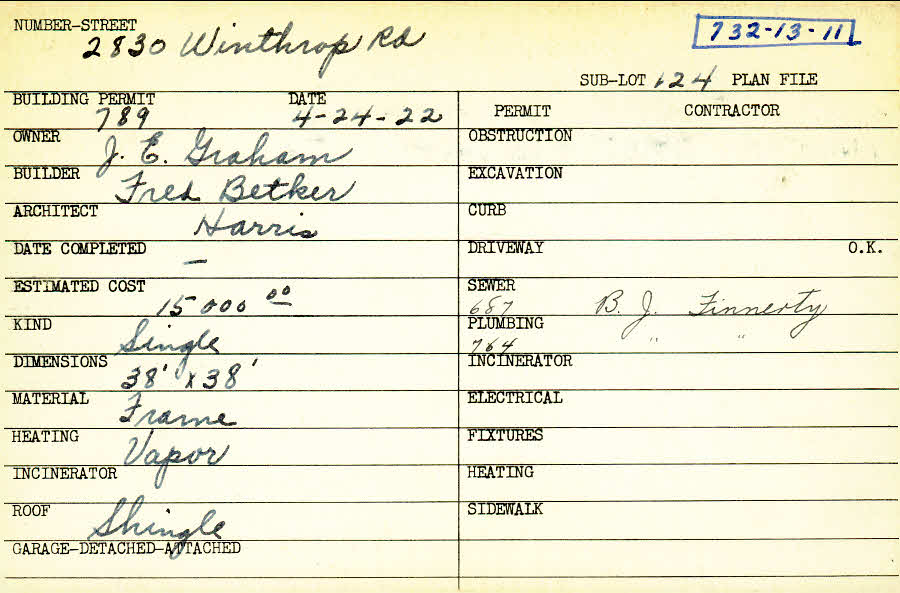 NUMBER-STREET
2830 Winthrop Rd
732-13-11
SUB-LOT 124 PLAN FILE
BUILDING PERMIT DATE
789 4-24-22
PERMIT CONTRACTOR
OWNER J. E. Graham
OBSTRUCTION
BUILDER Fred Betker
EXCAVATION
ARCHITECT Harris
CURB
DATE COMPLETED —
DRIVEWAY O.K.
ESTIMATED COST 15000 00
SEWER
687 B. J. Finnerty
KIND Single
PLUMBING
764 " "
DIMENSIONS 38' x 38'
INCINERATOR
MATERIAL Frame
ELECTRICAL
HEATING Vapor
FIXTURES
INCINERATOR
HEATING
ROOF Shingle
SIDEWALK
GARAGE-DETACHED-ATTACHED